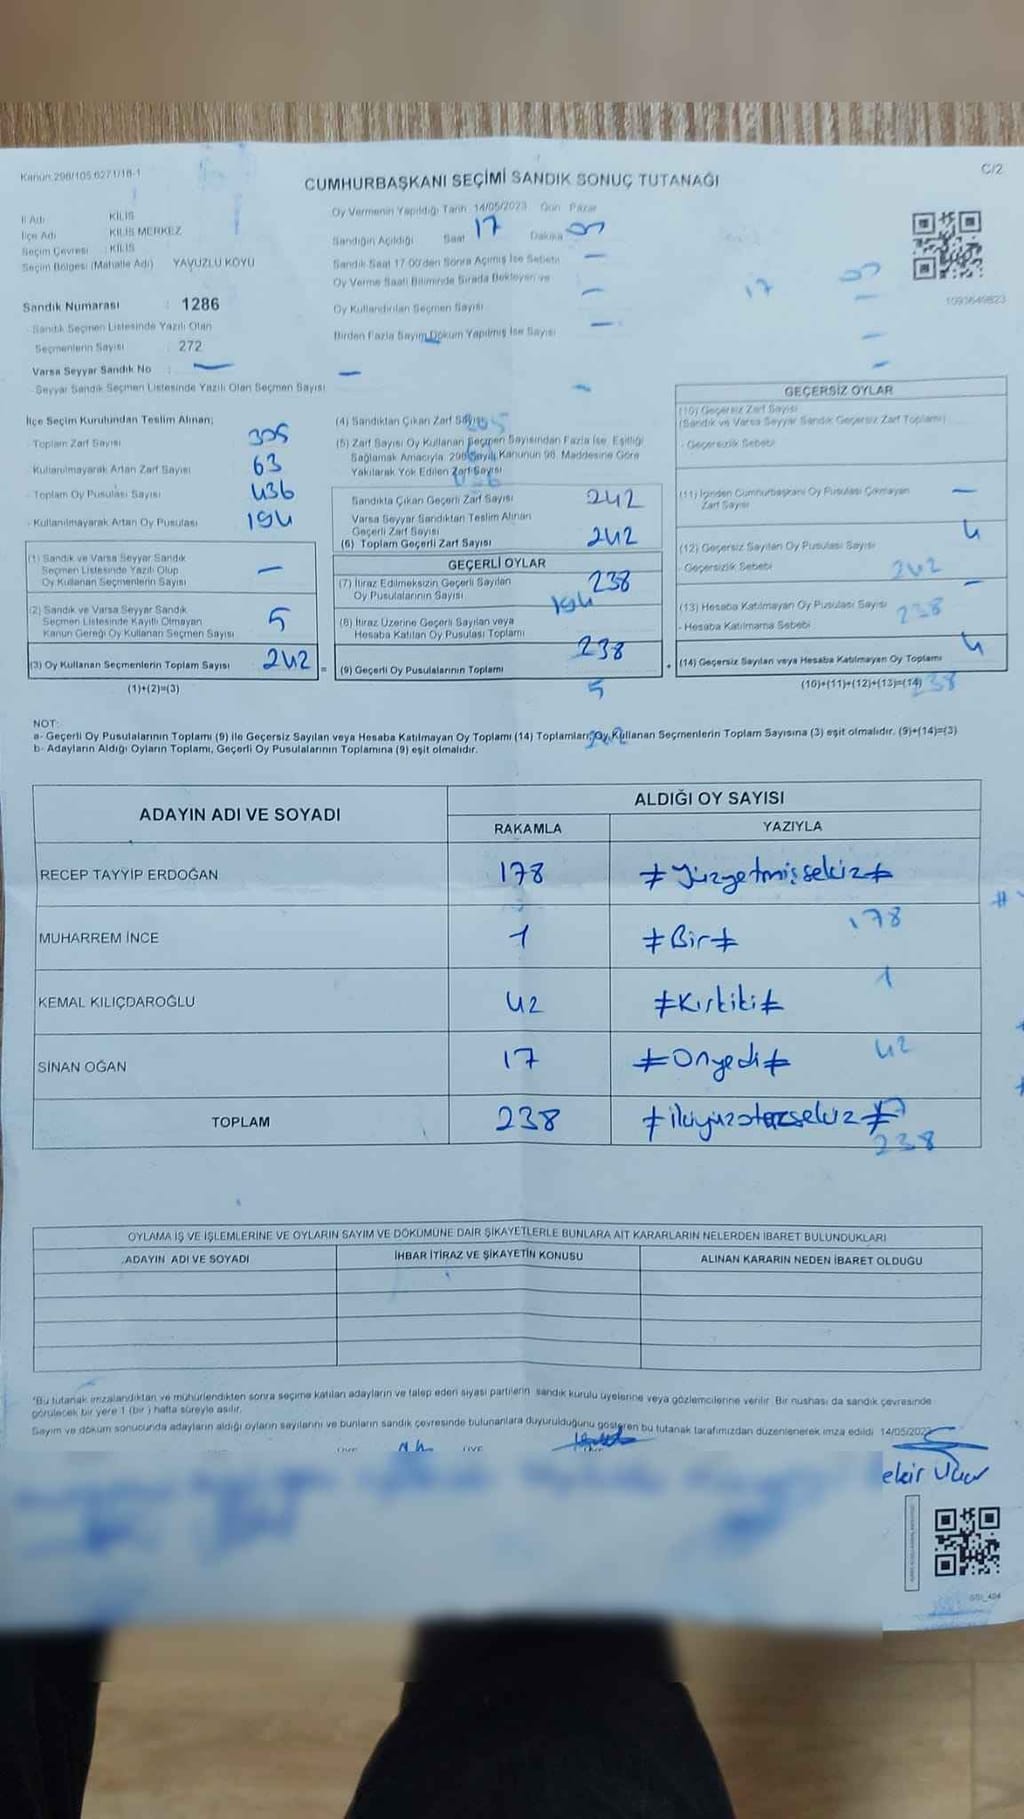 Kanun 298/105 6271/18-1
C/2
CUMHURBAŞKANI SEÇİMİ SANDIK SONUÇ TUTANAĞI
İl Adı : KİLİS
İlçe Adı : KİLİS MERKEZ
Seçim Çevresi : KİLİS
Seçim Bölgesi (Mahalle Adı) YAVUZLU KÖYÜ
Oy Vermenin Yapıldığı Tarih 14/05/2023 Gün Pazar
Sandığın Açıldığı Saat 17 Dakika
Sandık Saat 17:00'den Sonra Açımış İse Sebebi —
Oy Verme Saati Bitiminde Sırada Bekleyen ve
Oy Kullandırılan Seçmen Sayısı —
Birden Fazla Sayım Döküm Yapılmış İse Sayısı —
17
1093649823
Sandık Numarası : 1286
- Sandık Seçmen Listesinde Yazılı Olan
Seçmenlerin Sayısı : 272
Varsa Seyyar Sandık No : —
- Seyyar Sandık Seçmen Listesinde Yazılı Olan Seçmen Sayısı —
İlçe Seçim Kurulundan Teslim Alınan;
- Toplam Zarf Sayısı 305
- Kullanılmayarak Artan Zarf Sayısı 63
- Toplam Oy Pusulası Sayısı 436
- Kullanılmayarak Artan Oy Pusulası 194
(1) Sandık ve Varsa Seyyar Sandık
Seçmen Listesinde Yazılı Olup
Oy Kullanan Seçmenlerin Sayısı —
(2) Sandık ve Varsa Seyyar Sandık
Seçmen Listesinde Kayıtlı Olmayan
Kanun Gereği Oy Kullanan Seçmen Sayısı 5
(3) Oy Kullanan Seçmenlerin Toplam Sayısı 242 =
(1)+(2)=(3)
(4) Sandıktan Çıkan Zarf Sayısı
(5) Zarf Sayısı Oy Kullanan Seçmen Sayısından Fazla İse, Eşitliği
Sağlamak Amacıyla, 298 Sayılı Kanunun 98. Maddesine Göre
Yakılarak Yok Edilen Zarf Sayısı
Sandıkta Çıkan Geçerli Zarf Sayısı 242
Varsa Seyyar Sandıktan Teslim Alınan
Geçerli Zarf Sayısı
(6) Toplam Geçerli Zarf Sayısı 242
GEÇERLİ OYLAR
(7) İtiraz Edilmeksizin Geçerli Sayılan
Oy Pusulalarının Sayısı 238
194
(8) İtiraz Üzerine Geçerli Sayılan veya
Hesaba Katılan Oy Pusulası Toplamı
(9) Geçerli Oy Pusulalarının Toplamı 238 +
5
GEÇERSİZ OYLAR
(10) Geçersiz Zarf Sayısı
(Sandık ve Varsa Seyyar Sandık Geçersiz Zarf Toplamı)
- Geçersizlik Sebebi
(11) İçinden Cumhurbaşkanı Oy Pusulası Çıkmayan
Zarf Sayısı —
(12) Geçersiz Sayılan Oy Pusulası Sayısı 4
- Geçersizlik Sebebi 242
(13) Hesaba Katılmayan Oy Pusulası Sayısı — 238
- Hesaba Katılmama Sebebi
(14) Geçersiz Sayılan veya Hesaba Katılmayan Oy Toplamı 4
(10)+(11)+(12)+(13)=(14) 238
NOT:
a- Geçerli Oy Pusulalarının Toplamı (9) ile Geçersiz Sayılan veya Hesaba Katılmayan Oy Toplamı (14) Toplamları, Oy Kullanan Seçmenlerin Toplam Sayısına (3) eşit olmalıdır. (9)+(14)=(3)
b- Adayların Aldığı Oyların Toplamı, Geçerli Oy Pusulalarının Toplamına (9) eşit olmalıdır.
ADAYIN ADI VE SOYADI
ALDIĞI OY SAYISI
RAKAMLA YAZIYLA
RECEP TAYYİP ERDOĞAN 178 #Yüzyetmişsekiz#
178
MUHARREM İNCE 1 #Bir#
1
KEMAL KILIÇDAROĞLU 42 #Kırkiki#
42
SİNAN OĞAN 17 #Onyedi#
17
TOPLAM 238 #ikiyüzotuzsekiz#
238
OYLAMA İŞ VE İŞLEMLERİNE VE OYLARIN SAYIM VE DÖKÜMÜNE DAİR ŞİKAYETLERLE BUNLARA AİT KARARLARIN NELERDEN İBARET BULUNDUKLARI
ADAYIN ADI VE SOYADI İHBAR İTİRAZ VE ŞİKAYETİN KONUSU ALINAN KARARIN NEDEN İBARET OLDUĞU
*Bu tutanak imzalandıktan ve mühürlendikten sonra seçime katılan adayların ve talep eden siyasi partilerin sandık kurulu üyelerine veya gözlemcilerine verilir. Bir nushası da sandık çevresinde
görülecek bir yere 1 (bir ) hafta süreyle asılır.
Sayım ve döküm sonucunda adayların aldığı oyların sayılarını ve bunların sandık çevresinde bulunanlara duyurulduğunu gösteren bu tutanak tarafımızdan düzenlenerek imza edildi 14/05/2023